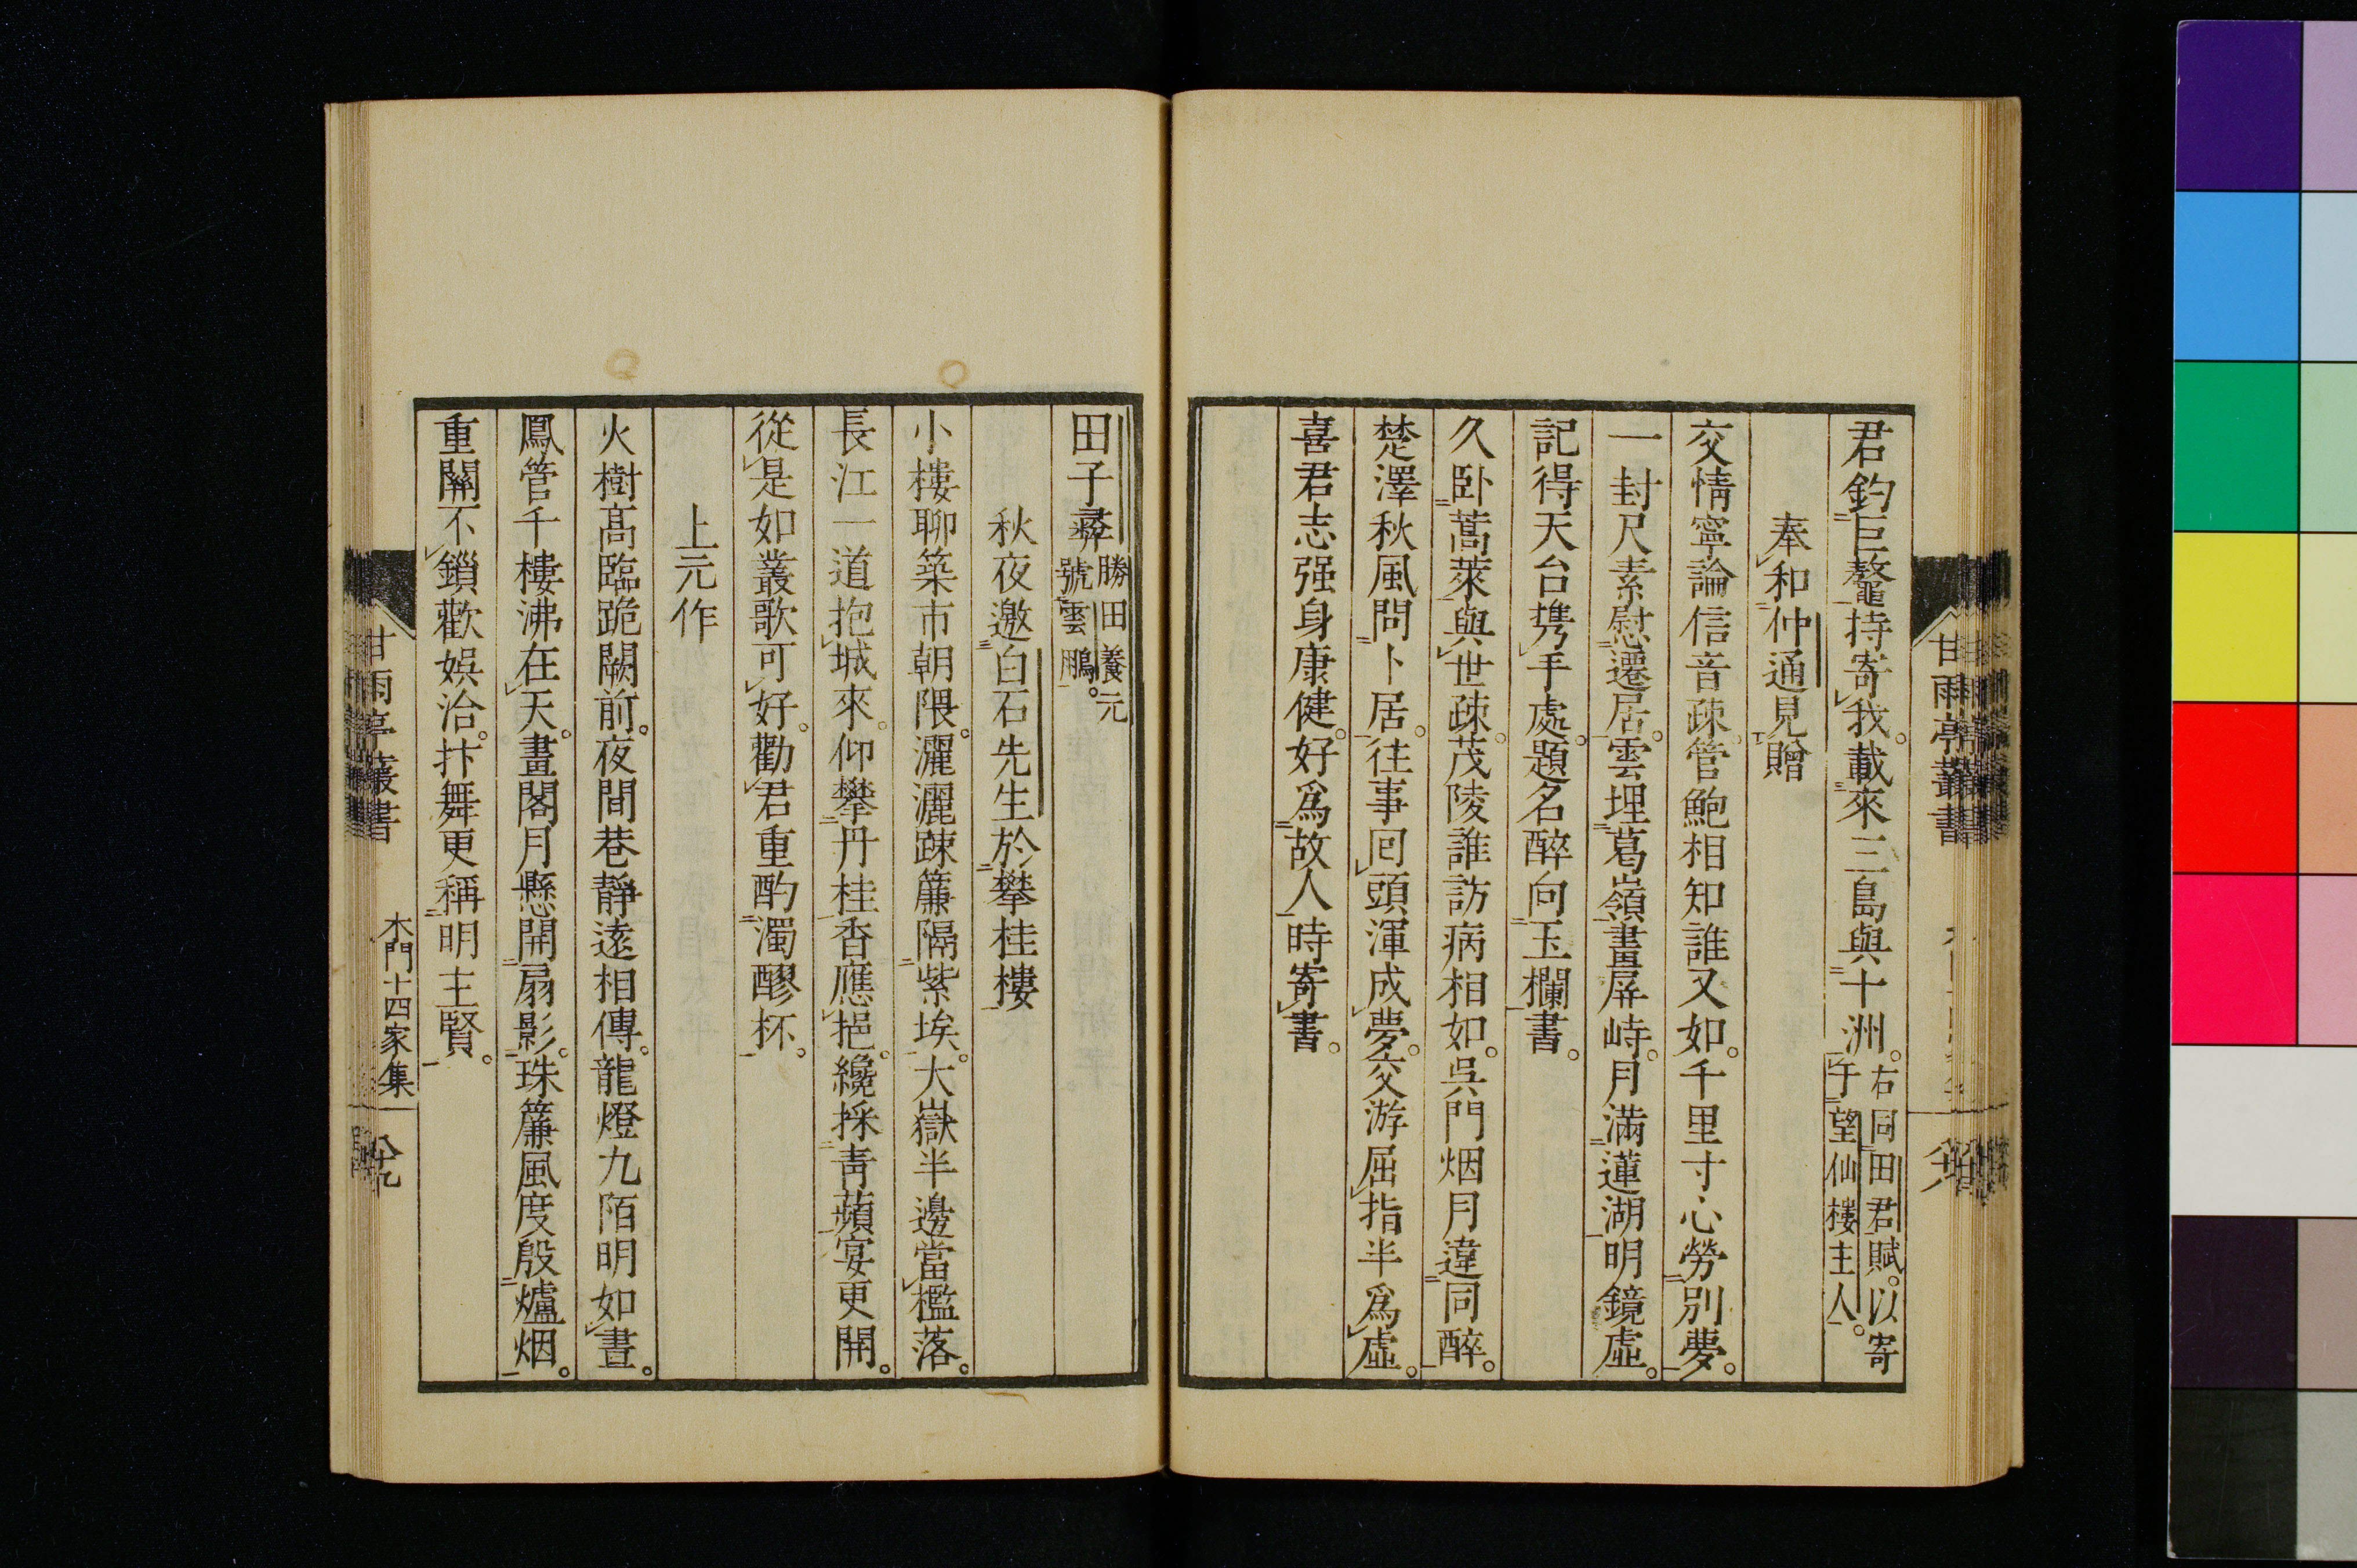 君釣巨鼇持寄我。載來三島與十洲。右同田君賦。以寄
于望仙樓主人。
奉和仲通見贈
交情寧論信音疎。管鮑相知誰又如。千里寸心勞別夢。
一封尺素慰遷居。雲埋葛嶺畫屏峙。月滿蓮湖明鏡虛。
記得天台携手處。題名醉向玉欄書。
久臥蒿萊與世疎。茂陵誰訪病相如。吳門烟月違同醉。
楚澤秋風問卜居。往事回頭渾成夢。交游屈指半爲虛。
喜君志强身康健。好爲故人時寄書。
甘雨亭叢書
田子彝勝田養元
號雲鵬。
秋夜邀白石先生於攀桂樓
小樓聊築市朝隈。灑灑踈簾隔紫埃。大嶽半邊當檻落。
長江一道抱城來。仰攀丹桂香應挹。纔採青蘋宴更開。
從是如叢歌可好。勸君重酌濁醪杯。
上元作
火樹高臨跪闕前。夜間巷靜遠相傳。龍燈九陌明如晝。
鳳管千樓沸在天。畫閣月懸開扇影。珠簾風度殷爐烟。
重關不鎖歡娛洽。抃舞更稱明主賢。
甘雨亭叢書
木門十四家集